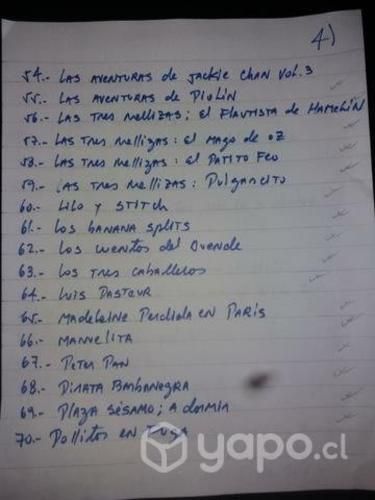 4)
54.- LAS AVENTURAS de JACKIE CHAN Vol. 3
55.- LAS AVENTURAS de PIOLIN
56.- LAS TRES MELLIZAS; El FlAUTISTA de HAMELIN
57.- LAS TRES MELLIZAS: El MAGO de OZ
58.- LAS TRES MELLIZAS: El PATITO FEO
59.- LAS TRES MELLIZAS: PULGARCITO
60.- LILO Y STITCH
61.- LOS BANANA SPLITS
62.- LOS CUENTOS del DUENDE
63.- LOS TRES CABALLEROS
64.- LUIS PASTEUR
65.- MADELEINE PERDIDA EN PARIS
66.- MANUELITA
67.- PETER PAN
68.- PIRATA BARBANEGRA
69.- PLAZA SÉSAMO; A DORMIR
70.- POLLITOS EN FUGA
yapo.cl